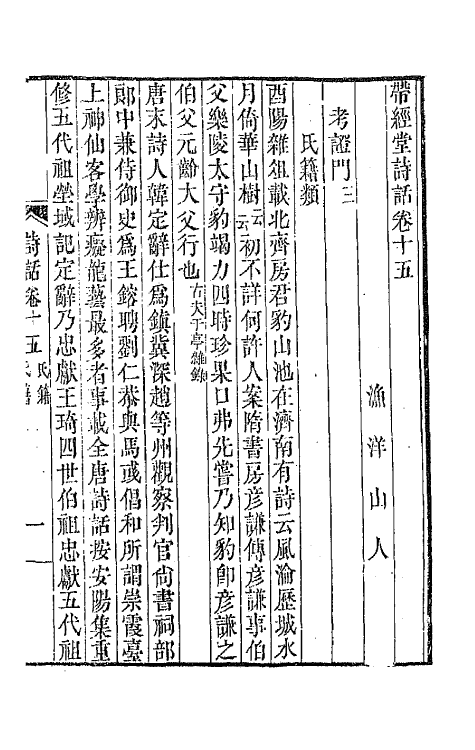 帶經堂詩話卷十五
漁洋山人
考證門三
氏籍類
酉陽雜俎載北齊房君豹山池在濟南有詩云風淪歷城水
月倚華山樹云云初不詳何許人案隋書房彥謙傳彥謙事伯
父樂陵太守豹竭力四時珍果口弗先嘗乃知豹卽彥謙之
伯父元齡大父行也古夫于亭雜錄
唐末詩人韓定辭仕爲鎮冀深趙等州觀察判官尙書祠部
郞中兼侍御史爲王鎔聘劉仁恭與馬或倡和所謂崇霞臺
上神仙客學辨癡龍藝最多者事載全唐詩話按安陽集重
修五代祖塋域記定辭乃忠獻王琦四世伯祖忠獻五代祖
詩話卷十五 氏籍 一